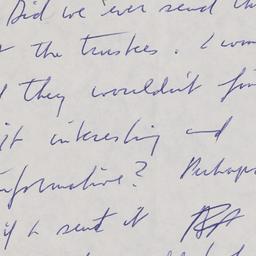 Did we ever send th
the trustees. I won
they wouldn't fin
it interesting and
nformative? Perhaps
if I sent it